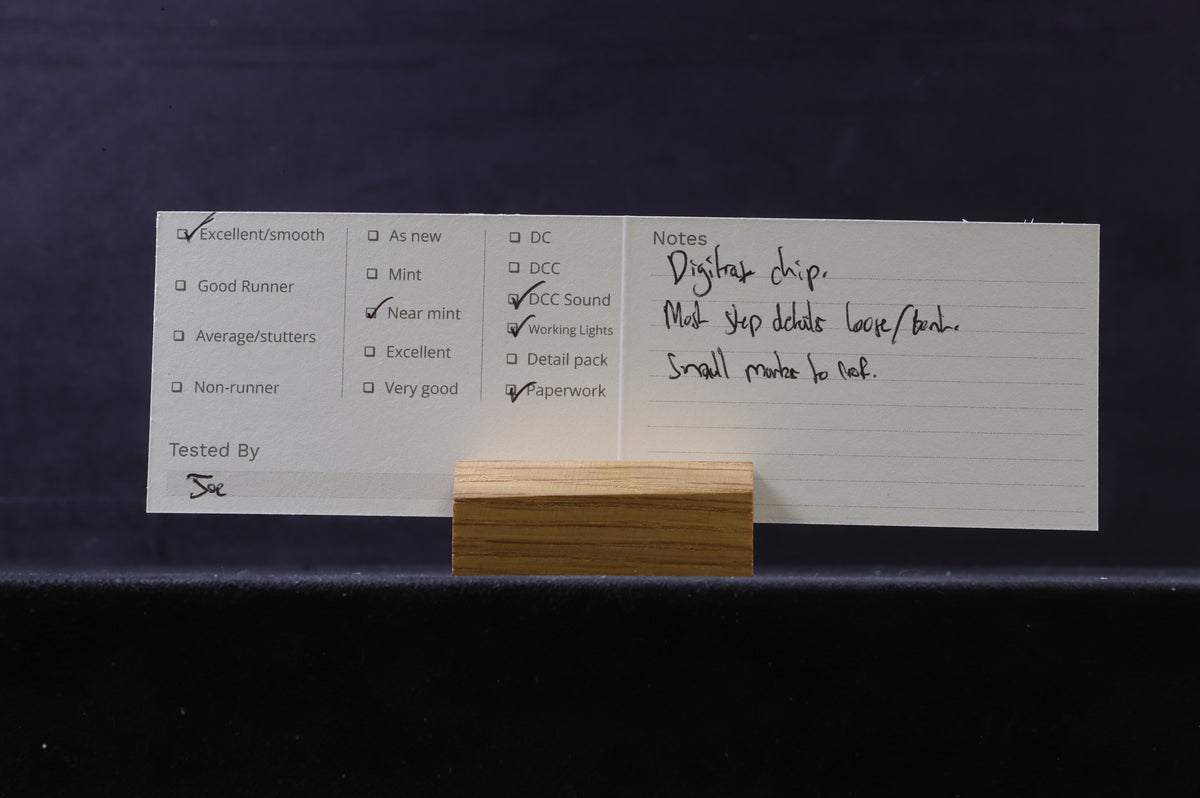 Excellent/smooth
Good Runner
Average/stutters
Non-runner
As new
Mint
Near mint
Excellent
Very good
DC
DCC
DCC Sound
Working Lights
Detail pack
Paperwork
Tested By
Joe
Notes
Digitrax chip.
Most step details loose/bent.
Small marks to roof.